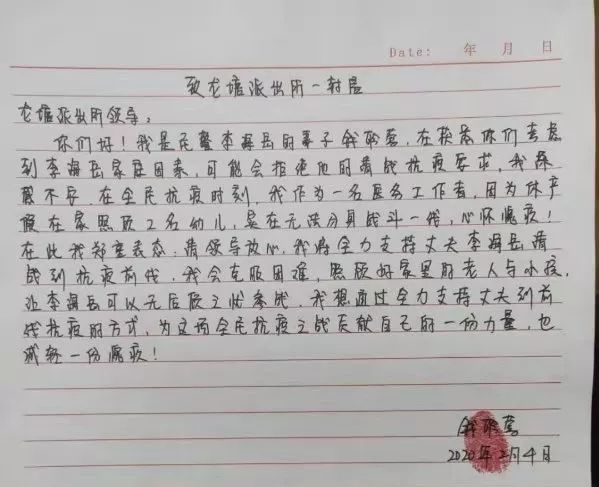 Date: 年 月 日
致龙塘派出所一封信
龙塘派出所领导：
你们好！我是民警李海岳的妻子钱聪莺，在获悉你们考虑
到李海岳家庭因素，可能会拒绝他的请战抗疫要求，我深
感不安，在全民抗疫时刻，我作为一名医务工作者，因为休产
假在家照顾2名幼儿，实在无法分身战斗一线，心怀愧疚！
在此我郑重表态：请领导放心，我将全力支持丈夫李海岳请
战到抗疫前线，我会克服困难，照顾好家里的老人与小孩，
让李海岳可以无后顾之忧参战，我想通过全力支持丈夫到前
线抗疫的方式，为这场全民抗疫之战贡献自己的一份力量，也
减轻一份愧疚！
钱聪莺
2020年2月4日